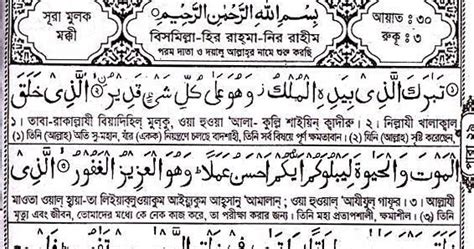 সূরা মুলক
মক্কী
بِسْمِ اللهِ الرَّحْمٰنِ الرَّحِيْمِ
বিসমিল্লা-হির রাহমা-নির রাহীম
পরম দাতা ও দয়ালু আল্লাহর নামে শুরু করছি
আয়াত : ৩০
রুকূ : ৩
تَبٰرَكَ الَّذِىْ بِيَدِهِ الْمُلْكُ وَهُوَ عَلٰى كُلِّ شَىْءٍ قَدِيْرُ ۨ الَّذِىْ خَلَقَ
১। তাবা-রাকাল্লাযী বিয়াদিহিল মুলকু, ওয়া হুওয়া 'আলা- কুল্লি শাইয়িন্ ক্বাদীরু। ২। নিল্লাযী খালাক্বাল্
(১) তিনি (আল্লাহ) অতি সু-মহান, যাঁর (একক) নিয়ন্ত্রণে চলছে বাদশাহী, তিনি সর্ব বিষয়ে পূর্ণ ক্ষমতাবান। (২) যিনি (আল্লাহ) সৃষ্টি করেছেন,
الْمَوْتَ وَالْحَيٰوةَ لِيَبْلُوَكُمْ اَيُّكُمْ اَحْسَنُ عَمَلًا وَهُوَ الْعَزِيْزُ الْغَفُوْرُ الَّذِىْ
মাওতা ওয়াল্ হায়া-তা লিইয়াব্লুওয়াকুম্ আইয়্যুকুম্ আহ্সানু 'আমালান্; ওয়া হুওয়াল্ 'আযীযুল্ গাফূর। ৩। আল্লাযী
মৃত্যু এবং জীবন, তোমাদের মধ্যে কে নেক কাজ করে, তা পরীক্ষা করার জন্য। তিনি মহা প্রতাপশালী, ক্ষমাশীল। (৩) তিনি